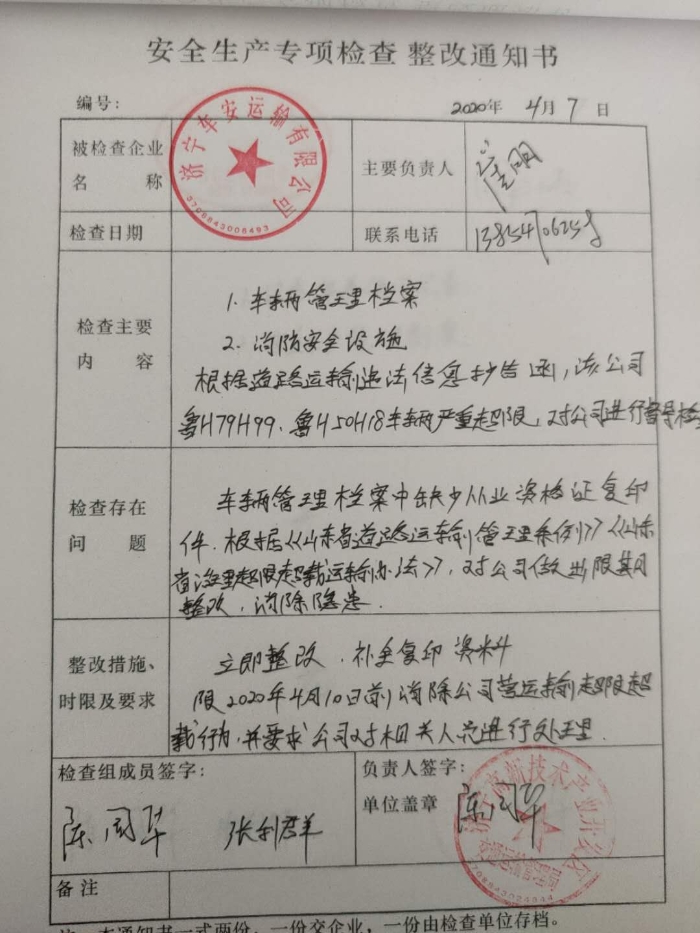 安全生产专项检查 整改通知书
编号: 2020年 4月 7日
被检查企业
名 称
济宁车安运输有限公司
3708843006493
主要负责人
检查日期
联系电话
检查主要
内 容
1. 车辆管理档案
2. 消防安全设施
根据道路运输违法信息抄告函,该公司
鲁H79H99、鲁H50H18车辆严重超限,对公司进行督导检
检查存在
问 题
车辆管理档案中缺少从业资格证复印
件.根据《山东省道路运输管理条例》《山东
省治理超限超载运输办法》,对公司做出限期
整改,消除隐患.
整改措施、
时限及要求
立即整改.补全复印资料
限2020年4月10日前消除公司营运输超限超
载行为,并要求公司对相关人员进行处理.
检查组成员签字:
陈国华 张利群
负责人签字:
单位盖章
陈国华
济宁高新技术产业开发区
备注
注:本通知书一式两份,一份交企业,一份由检查单位存档。